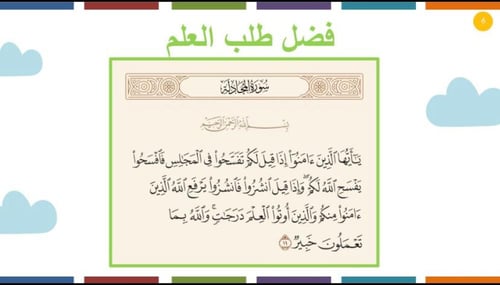 6
فضل طلب العلم
سُورَةُ المُجَادلَةِ
بِسْمِ اللَّهِ الرَّحْمَٰنِ الرَّحِيمِ
يَٰٓأَيُّهَا ٱلَّذِينَ ءَامَنُوٓا۟ إِذَا قِيلَ لَكُمْ تَفَسَّحُوا۟ فِى ٱلْمَجَٰلِسِ فَٱفْسَحُوا۟
يَفْسَحِ ٱللَّهُ لَكُمْ ۖ وَإِذَا قِيلَ ٱنشُزُوا۟ فَٱنشُزُوا۟ يَرْفَعِ ٱللَّهُ ٱلَّذِينَ
ءَامَنُوا۟ مِنكُمْ وَٱلَّذِينَ أُوتُوا۟ ٱلْعِلْمَ دَرَجَٰتٍ ۚ وَٱللَّهُ بِمَا
تَعْمَلُونَ خَبِيرٌ ١١